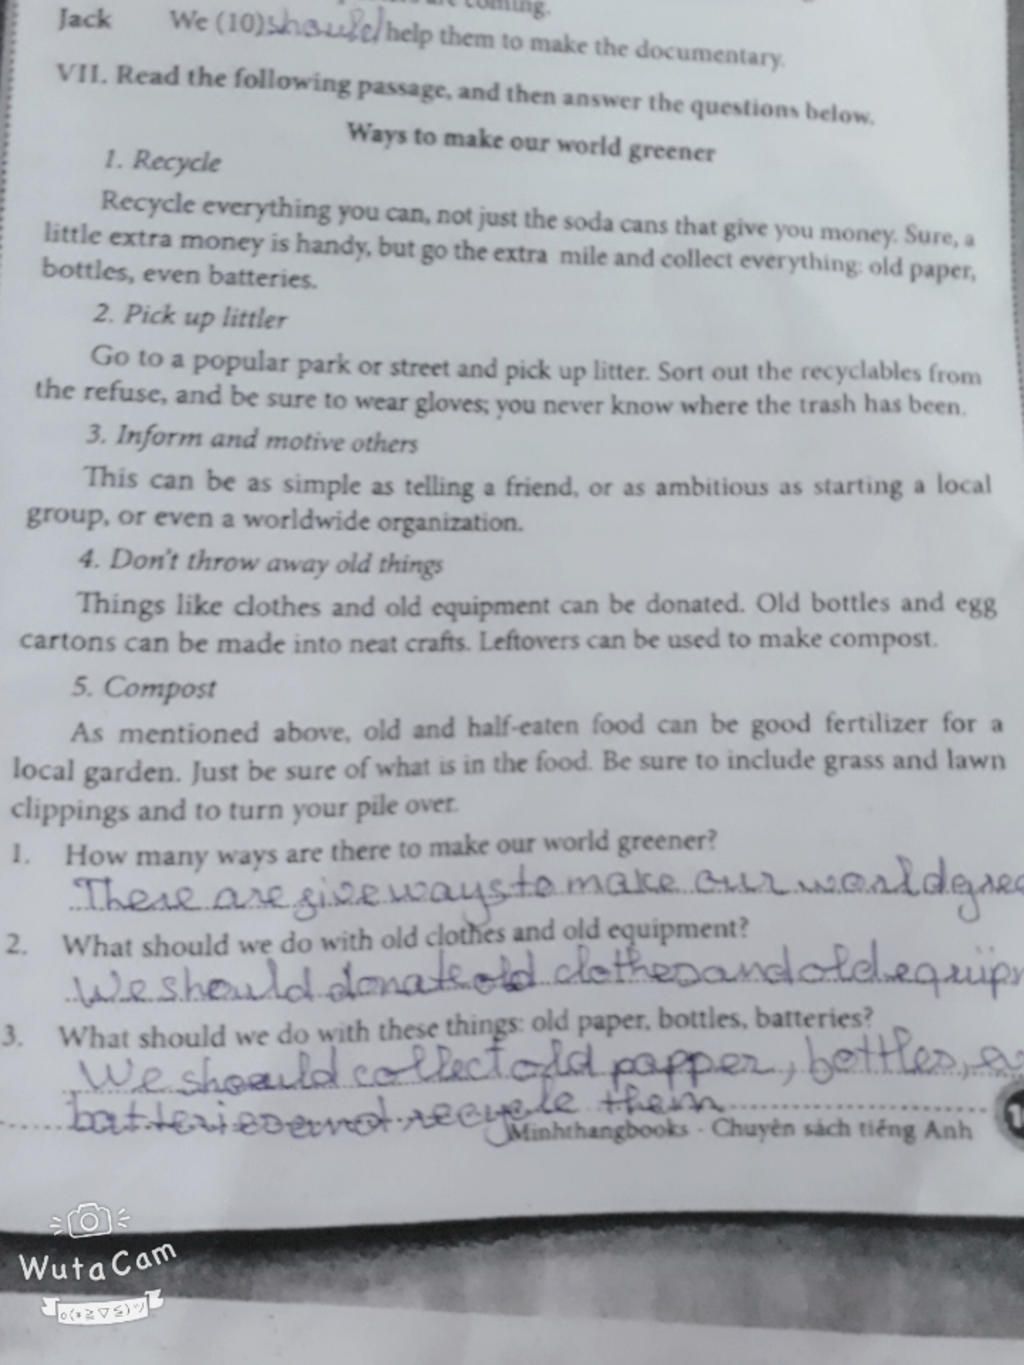 coming.
Jack We (10) should help them to make the documentary.
VII. Read the following passage, and then answer the questions below.
Ways to make our world greener
1. Recycle
Recycle everything you can, not just the soda cans that give you money. Sure, a
little extra money is handy, but go the extra mile and collect everything: old paper,
bottles, even batteries.
2. Pick up littler
Go to a popular park or street and pick up litter. Sort out the recyclables from
the refuse, and be sure to wear gloves; you never know where the trash has been.
3. Inform and motive others
This can be as simple as telling a friend, or as ambitious as starting a local
group, or even a worldwide organization.
4. Don't throw away old things
Things like clothes and old equipment can be donated. Old bottles and egg
cartons can be made into neat crafts. Leftovers can be used to make compost.
5. Compost
As mentioned above, old and half-eaten food can be good fertilizer for a
local garden. Just be sure of what is in the food. Be sure to include grass and lawn
clippings and to turn your pile over.
1. How many ways are there to make our world greener?
There are give ways to make our world gree
2. What should we do with old clothes and old equipment?
We should donate old clothes and old equip
3. What should we do with these things: old paper, bottles, batteries?
We should collect old papper, bottles,
batteries and recycle them
Minhthangbooks - Chuyên sách tiếng Anh
WutaCam